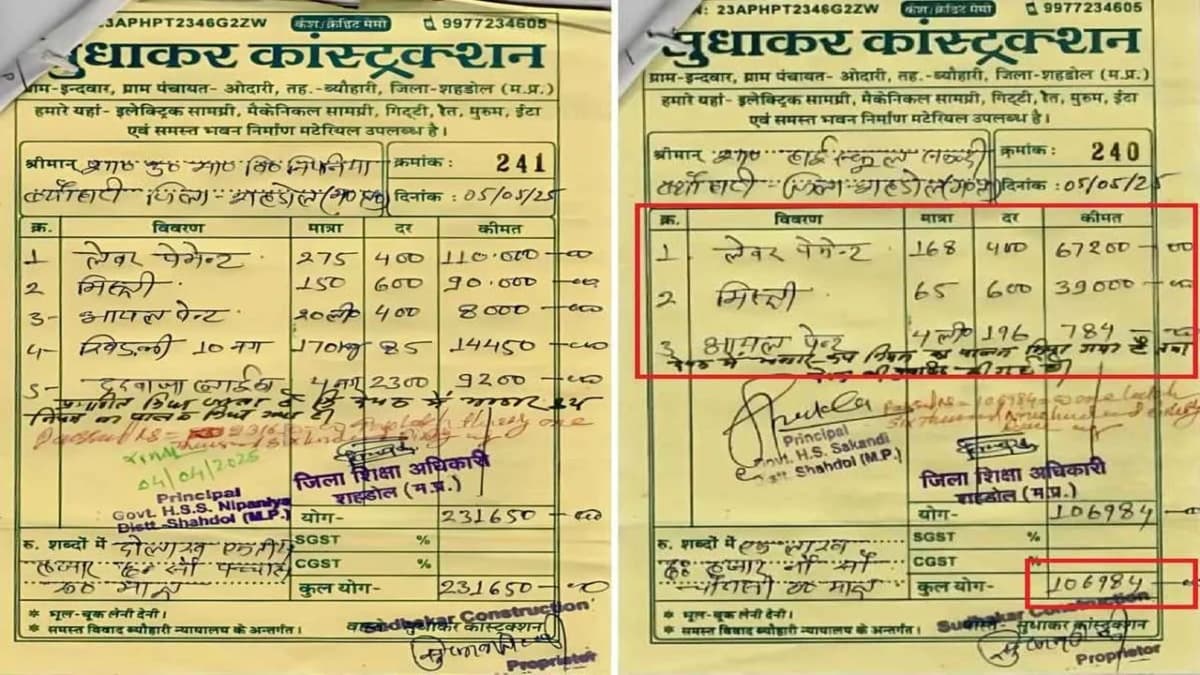 23APHPT2346G2ZW कैश/क्रेडिट मेमो 9977234605
सुधाकर कांस्ट्रक्शन
ग्राम-इन्दवार, ग्राम पंचायत- ओदारी, तह.-ब्यौहारी, जिला-शहडोल (म.प्र.)
हमारे यहां- इलेक्ट्रिक सामग्री, मैकेनिकल सामग्री, गिट्टी, रेत, मुरुम, ईटा
एवं समस्त भवन निर्माण मटेरियल उपलब्ध है।
श्रीमान् शा० उ० मा० वि० निपनिया क्रमांक : 241
ब्यौहारी जिला- शहडोल (म०प्र०) दिनांक : 05/05/25
क्र. विवरण मात्रा दर कीमत
1 लेवर पेमेन्ट 275 400 110.000
2 मिस्त्री 150 600 90.000
3- आयल पेन्ट 20 ली० 400 8000
4- खिड़की 10 नग 170kg 85 14450
5- दरवाजा 4 नग 2300 9200
04/04/2025
Principal
Govt. H.S.S. Nipaniya
Distt.-Shahdol (M.P.)
जिला शिक्षा अधिकारी
शहडोल (म.प्र.)
योग- 231650
SGST %
रु. शब्दों में दो लाख एकतीस
हजार छः सौ पच्चास
रू० मात्र
CGST %
कुल योग- 231650
* भूल-चूक लेनी देनी।
* समस्त विवाद ब्यौहारी न्यायालय के अन्तर्गत। सुधाकर कांस्ट्रक्शन
Sudhakar Construction
Proprietor
N: 23APHPT2346G2ZW कैश/क्रेडिट मेमो 9977234605
सुधाकर कांस्ट्रक्शन
ग्राम-इन्दवार, ग्राम पंचायत- ओदारी, तह.-ब्यौहारी, जिला-शहडोल (म.प्र.)
हमारे यहां- इलेक्ट्रिक सामग्री, मैकेनिकल सामग्री, गिट्टी, रेत, मुरुम, ईटा
एवं समस्त भवन निर्माण मटेरियल उपलब्ध है।
श्रीमान् शा० हाई स्कूल सकन्दी क्रमांक : 240
ब्यौहारी जिला शहडोल (म०प्र०) दिनांक : 05/05/25
क्र. विवरण मात्रा दर कीमत
1 लेवर पेमेन्ट 168 400 67200 00
2 मिस्त्री 65 600 39000
3 आयल पेन्ट 4 ली० 196 784
Principal
Govt. H.S. Sakandi
Distt. Shahdol (M.P.)
जिला शिक्षा अधिकारी
शहडोल (म.प्र.)
योग- 106984
SGST %
रु. शब्दों में एक लाख
छः हजार नौ सौ
चौरासी रू० मात्र
CGST %
कुल योग- 106984
* भूल-चूक लेनी देनी।
* समस्त विवाद ब्यौहारी न्यायालय के अन्तर्गत। सुधाकर कांस्ट्रक्शन
Sudhakar Construction
Proprietor